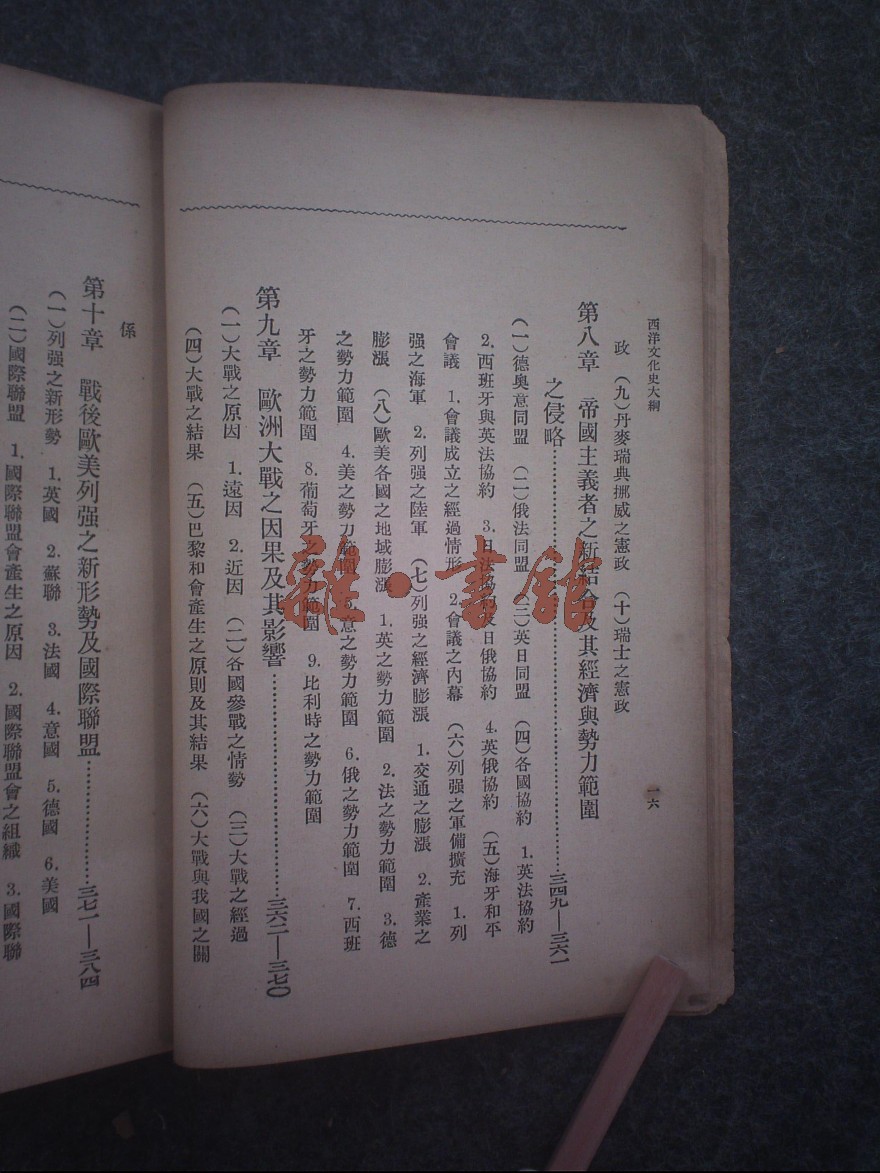 西洋文化史大綱
一六
政　(九)丹麥瑞典挪威之憲政　(十)瑞士之憲政
第八章　帝國主義者之新結合及其經濟與勢力範圍
之侵略……三四九—三六一
(一)德奧意同盟　(二)俄法同盟　(三)英日同盟　(四)各國協約　1.英法協約
2.西班牙與英法協約　3.日法協約及日俄協約　4.英俄協約　(五)海牙和平
會議　1.會議成立之經過情形　2.會議之內幕　(六)列强之軍備擴充　1.列
强之海軍　2.列强之陸軍　(七)列强之經濟膨漲　1.交通之膨漲　2.產業之
膨漲　(八)歐美各國之地域膨漲　1.英之勢力範圍　2.法之勢力範圍　3.德
之勢力範圍　4.美之勢力範圍　5.意之勢力範圍　6.俄之勢力範圍　7.西班
牙之勢力範圍　8.葡萄牙之勢力範圍　9.比利時之勢力範圍
第九章　歐洲大戰之因果及其影響……三六二—三七〇
(一)大戰之原因　1.遠因　2.近因　(二)各國參戰之情勢　(三)大戰之經過
(四)大戰之結果　(五)巴黎和會產生之原則及其結果　(六)大戰與我國之關
係
第十章　戰後歐美列强之新形勢及國際聯盟……三七一—三八四
(一)列强之新形勢　1.英國　2.蘇聯　3.法國　4.意國　5.德國　6.美國
(二)國際聯盟　1.國際聯盟會產生之原因　2.國際聯盟會之組織　3.國際聯
雜·書館